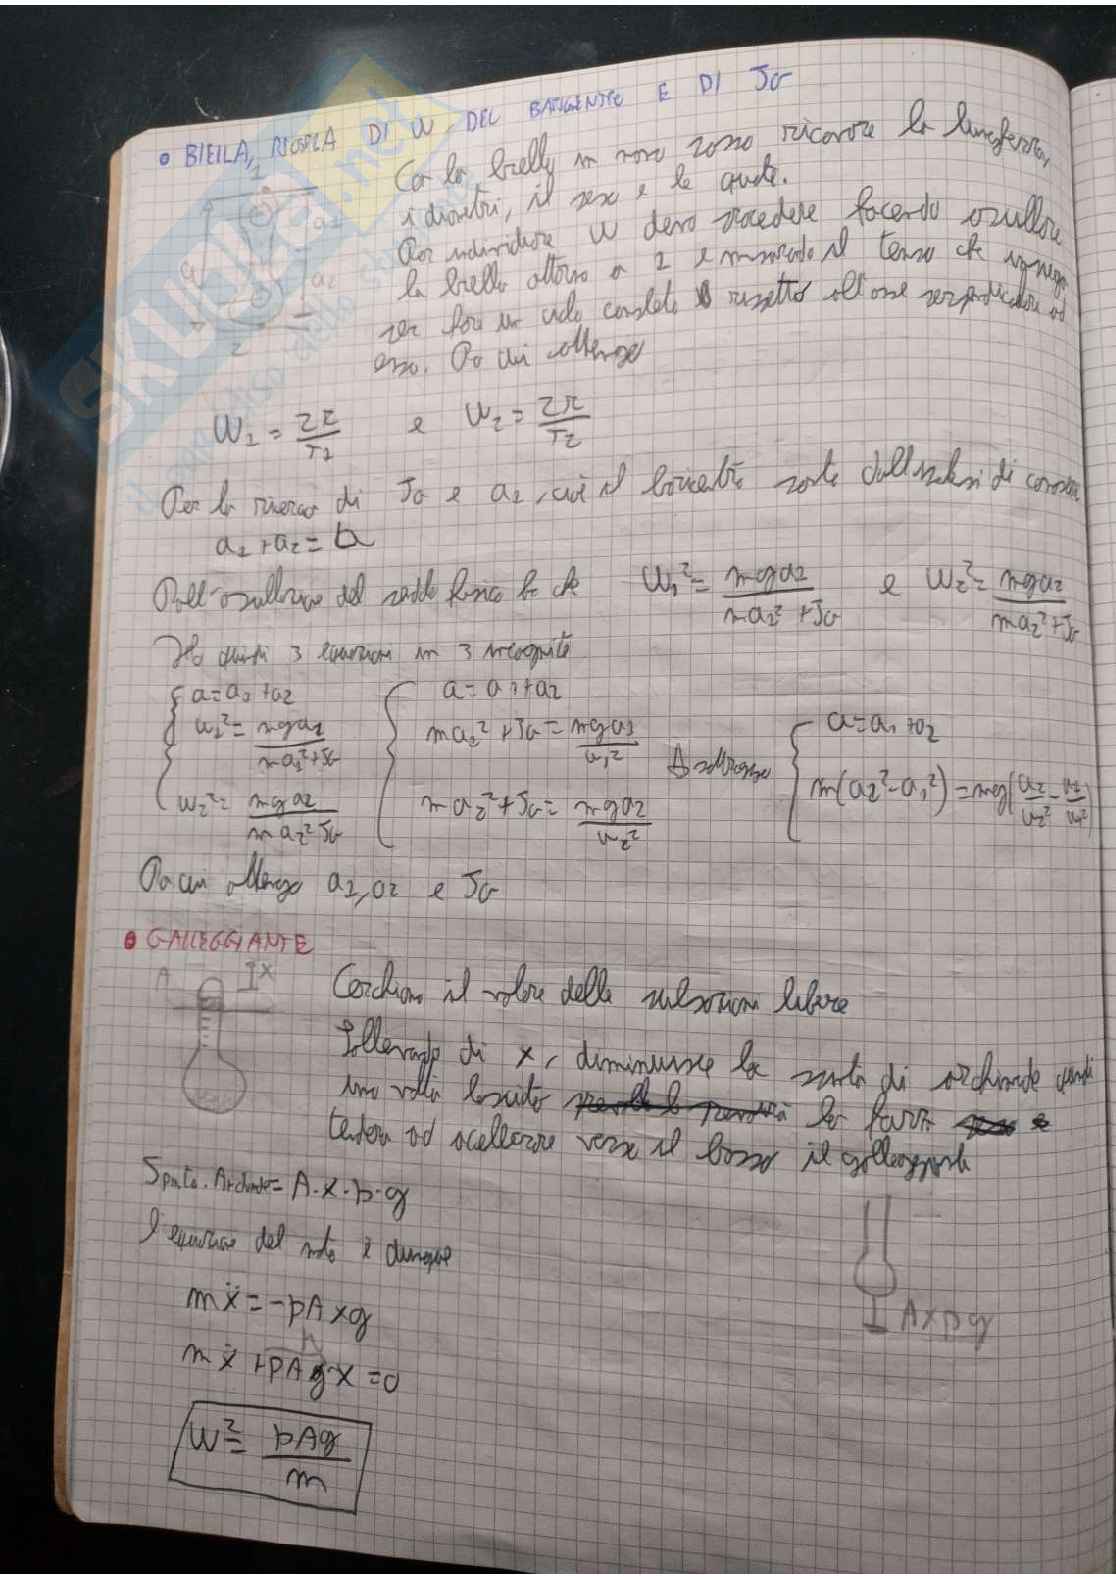 • BIELLA, RICERCA DI ω, DEL BARICENTRO E DI JG
1
a1
Con la biella in mano posso ricavare la
i diametri, il peso e le quote.
a
a2
Per individuare ω devo procedere facendo oscillare
2
la biella attorno a 1 e misurando il tempo che impiega
per fare un ciclo completo rispetto all'asse perpendicolare ad
esso. Da cui ottengo
ω1 = 2π/T1 e ω2 = 2π/T2
Per la ricerca di JG e a2, cioè il baricentro parto dall'
a1 + a2 = a
Dall'oscillazione del pendolo fisico ho che ω1² = mga1/(ma1² + JG) e ω2² = mga2/(ma2² + JG)
Ho quindi 3 equazioni in 3 incognite
a = a1 + a2
ω1² = mga1/(ma1² + JG)
ω2² = mga2/(ma2² JG)
a = a1 + a2
ma1² + JG = mga1/ω1²
ma2² + JG = mga2/ω2²
a = a1 + a2
m(a2² - a1²) = mg(a2/ω2² - a1/ω1²)
Da cui ottengo a1, a2 e JG
• GALLEGGIANTE
A
x
Cerchiamo il valore delle pulsazioni libere
Sollevando di x, diminuisce la spinta di archimede quindi
una volta lasciato la forza
tenderà ad accellerare verso il basso il galleggiante
Spinta Archimede = A·x·ρ·g
l'equazione del moto è dunque
mẍ = -ρAxg
Axρg
k
mẍ + ρAg·x = 0
ω² = ρAg/m